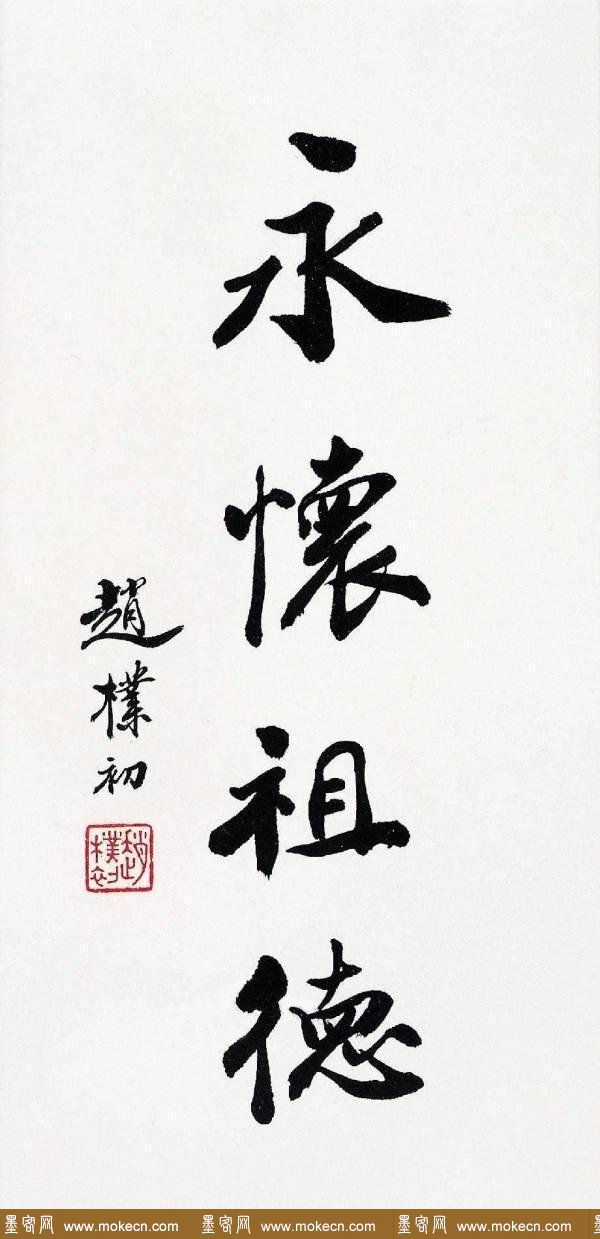 永懷祖德
趙樸初
趙樸初
墨客网 www.mokecn.com 墨客网 www.mokecn.com 墨客网 www.mokecn.com